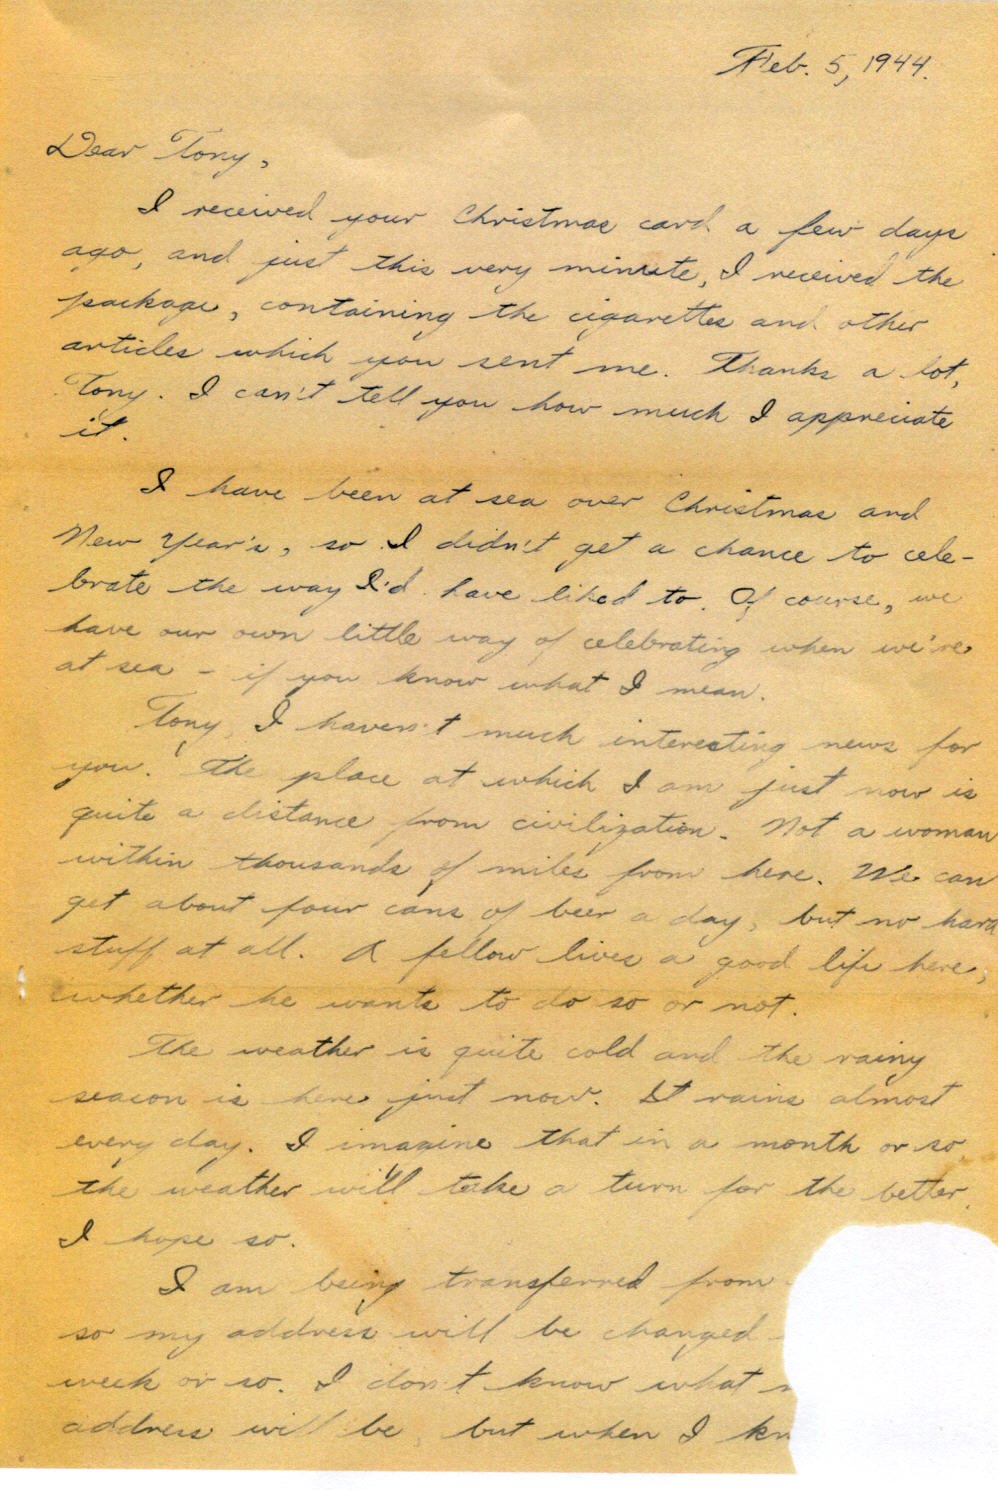 Feb. 5, 1944.
Dear Tony,
I received your Christmas card a few days
ago, and just this very minute, I received the
package, containing the cigarettes and other
articles which you sent me. Thanks a lot,
Tony. I can't tell you how much I appreciate
it.
I have been at sea over Christmas and
New Year's, so I didn't get a chance to cele-
brate the way I'd have liked to. Of course, we
have our own little way of celebrating when we're
at sea - if you know what I mean.
Tony, I haven't much interesting news for
you. The place at which I am just now is
quite a distance from civilization. Not a woman
within thousands of miles from here. We can
get about four cans of beer a day, but no hard
stuff at all. A fellow lives a good life here,
whether he wants to do so or not.
The weather is quite cold and the rainy
season is here just now. It rains almost
every day. I imagine that in a month or so,
the weather will take a turn for the better.
I hope so.
I am being transferred from
so my address will be changed
week or so. I don't know what
address will be, but when I kn